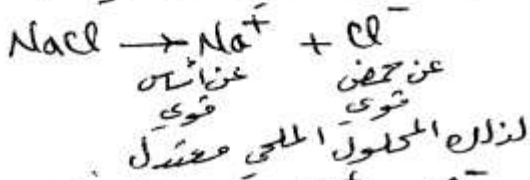 NaCl → Na⁺ + Cl⁻
عن أساس عن حمض
قوي قوي
لذلك المحلول الملحي معتدل